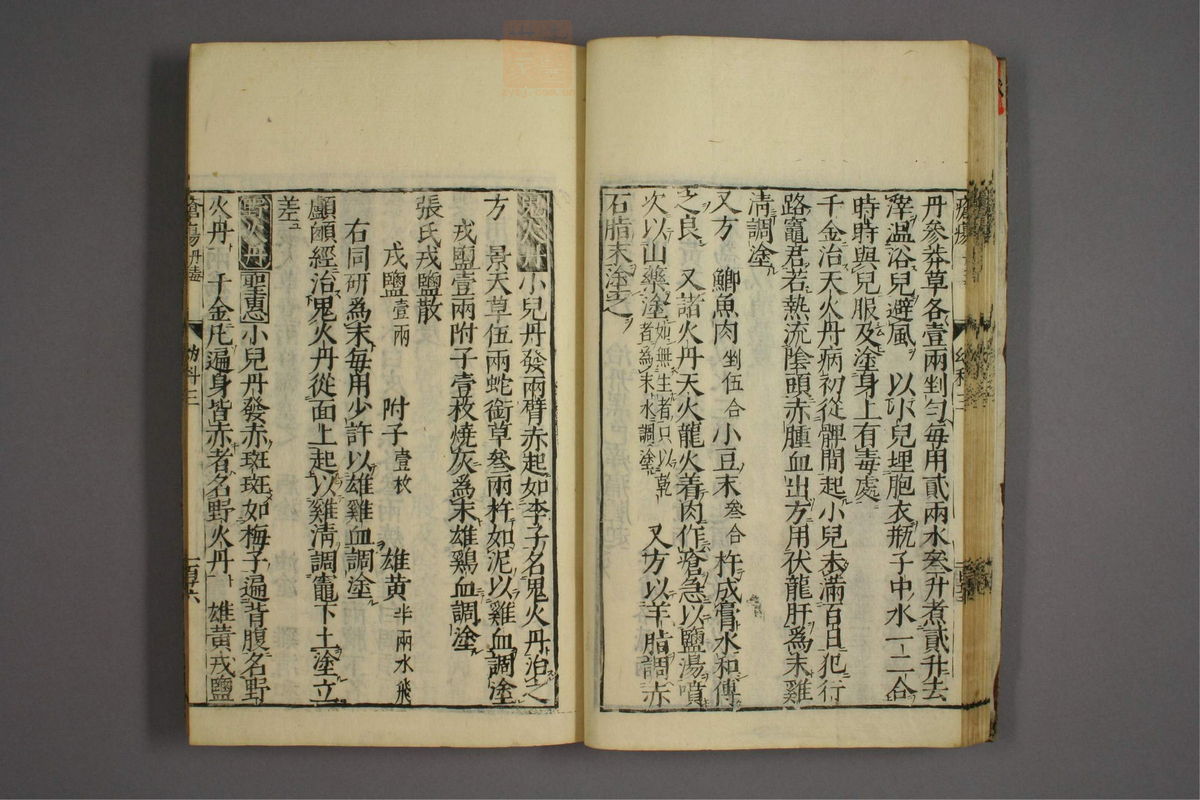 丹參莽草各壹兩剉勻每用貳兩水叄升煮貳升去
滓溫浴兒避風 以小兒埋胞衣瓶子中水一二合
時時與兒服及塗身上有毒處
千金治天火丹病初從髀間起小兒未滿百日犯行
路竈君若熱流陰頭赤腫血出方用伏龍肝為末雞
清調塗
又方 鯽魚肉剉伍合小豆末叄合杵成膏水和傅
之良 又諸火丹天火龍火着肉作瘡急以鹽湯噴
次以山藥塗如無生者只以乾者為末水調塗 又方以羊脂調赤
石脂末塗之
鬼火丹 小兒丹發兩臂赤起如李子名鬼火丹治之
方 景天草伍兩蛇銜草叄兩杵如泥以雞血調塗
戎鹽壹兩附子壹枚燒灰為末雄鷄血調塗
張氏戎鹽散
戎鹽壹兩 附子壹枚 雄黃半兩水飛
右同研為末每用少許以雄雞血調塗
顱顖經治鬼火丹從面上起以雞清調竈下土塗立
差
野火丹 聖惠小兒丹發赤斑斑如梅子遍背腹名野
火丹 千金凡遍身皆赤者名野火丹 雄黃戎鹽
瘡瘍丹毒 幼科三 一百六